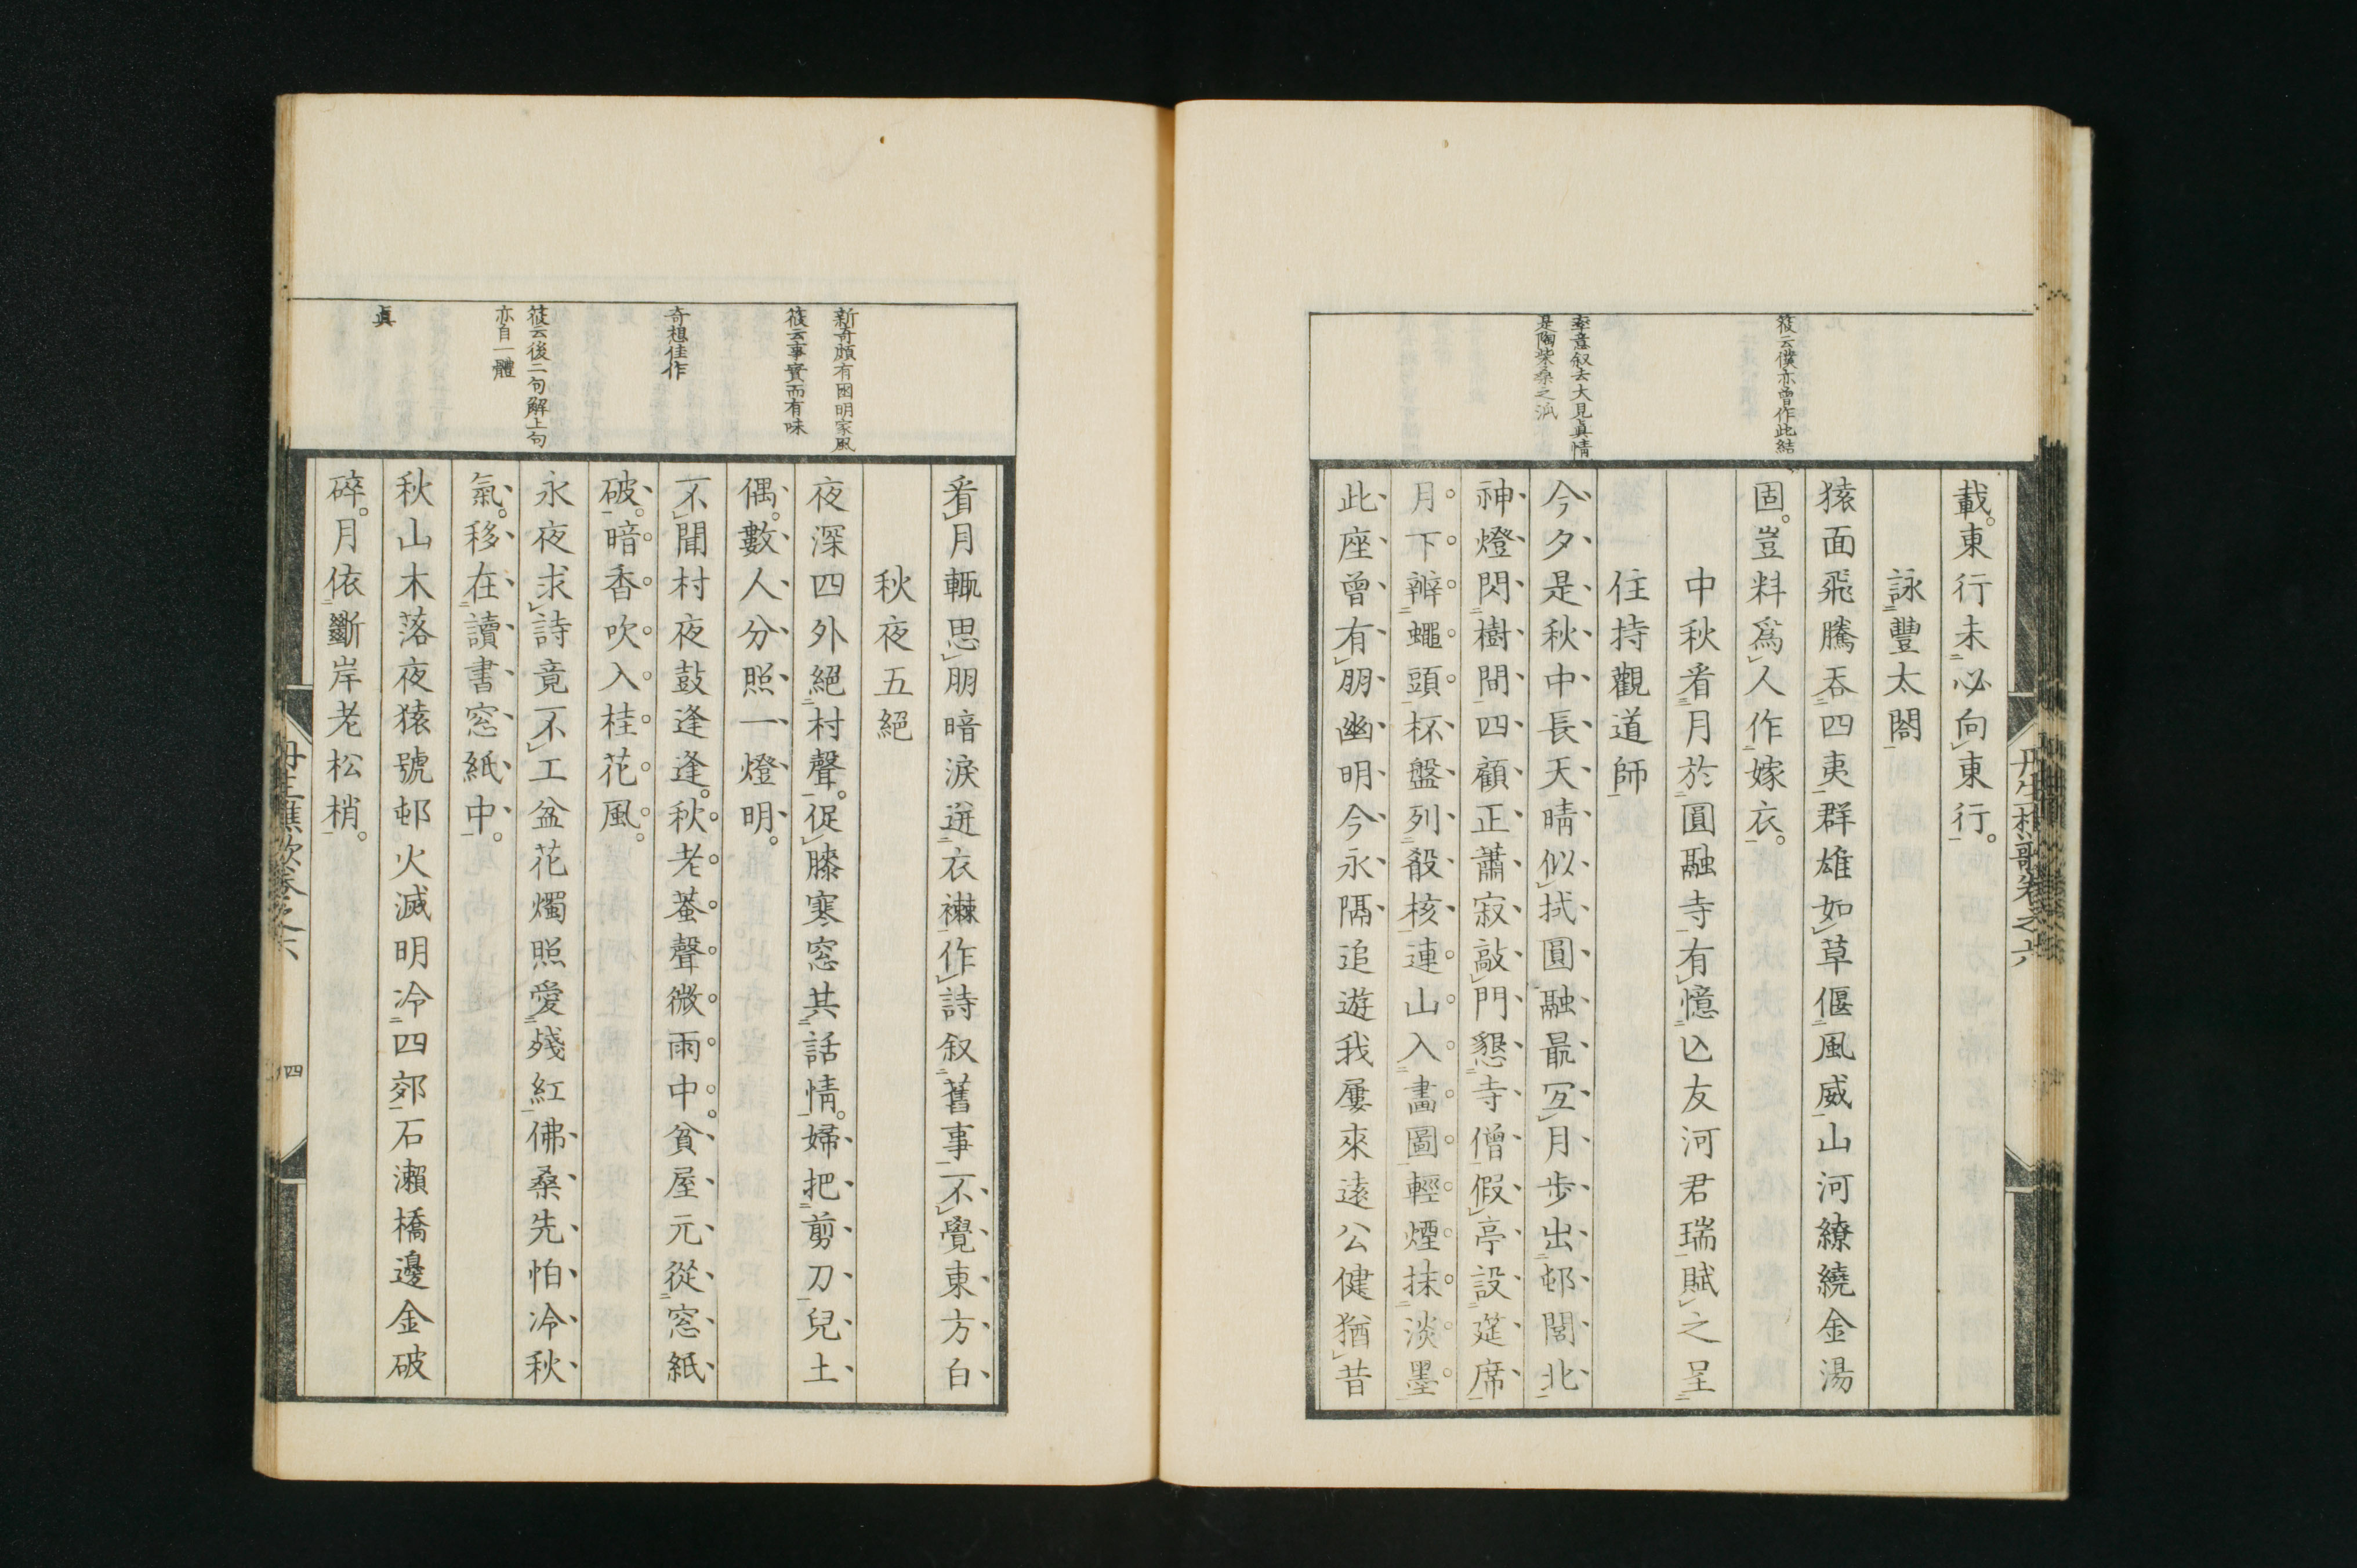 載。東行未必向東行。
詠豐太閤
猿面飛騰吞四夷群雄如草偃風威山河繚繞金湯
固。豈料爲人作嫁衣。
中秋看月於圓融寺有憶亡友河君瑞賦之呈
住持觀道師
今夕是秋中長天晴似拭圓融最宜月步出邨閭北
神燈閃樹間四顧正蕭寂敲門懇寺僧假亭設筵席
月下辨蠅頭杯盤列殽核連山入畵圖輕煙抹淡墨
此座曾有朋幽明今永隔追遊我屢來遠公健猶昔
筱云僕亦曾作此結
率意叙去大見眞情
是陶柴桑之派
丹生樵歌卷之六
看月輒思朋暗淚迸衣襟作詩叙舊事不覺東方白
秋夜五絕
夜深四外絕村聲。促膝寒窓共話情。婦把剪刀兒土
偶。數人分照一燈明。
不聞村夜鼓逢逢。秋老蛩聲微雨中。貧屋元從窓紙
破。暗香吹入桂花風。
永夜求詩竟不工盆花燭照愛殘紅佛桑先怕冷秋
氣。移在讀書窓紙中。
秋山木落夜猿號邨火滅明冷四郊石瀨橋邊金破
碎。月依斷岸老松梢。
新奇頗有國明家風
筱云事實而有味
奇想佳作
筱云後二句解上句
亦自一體
眞
丹生樵歌卷之六
四